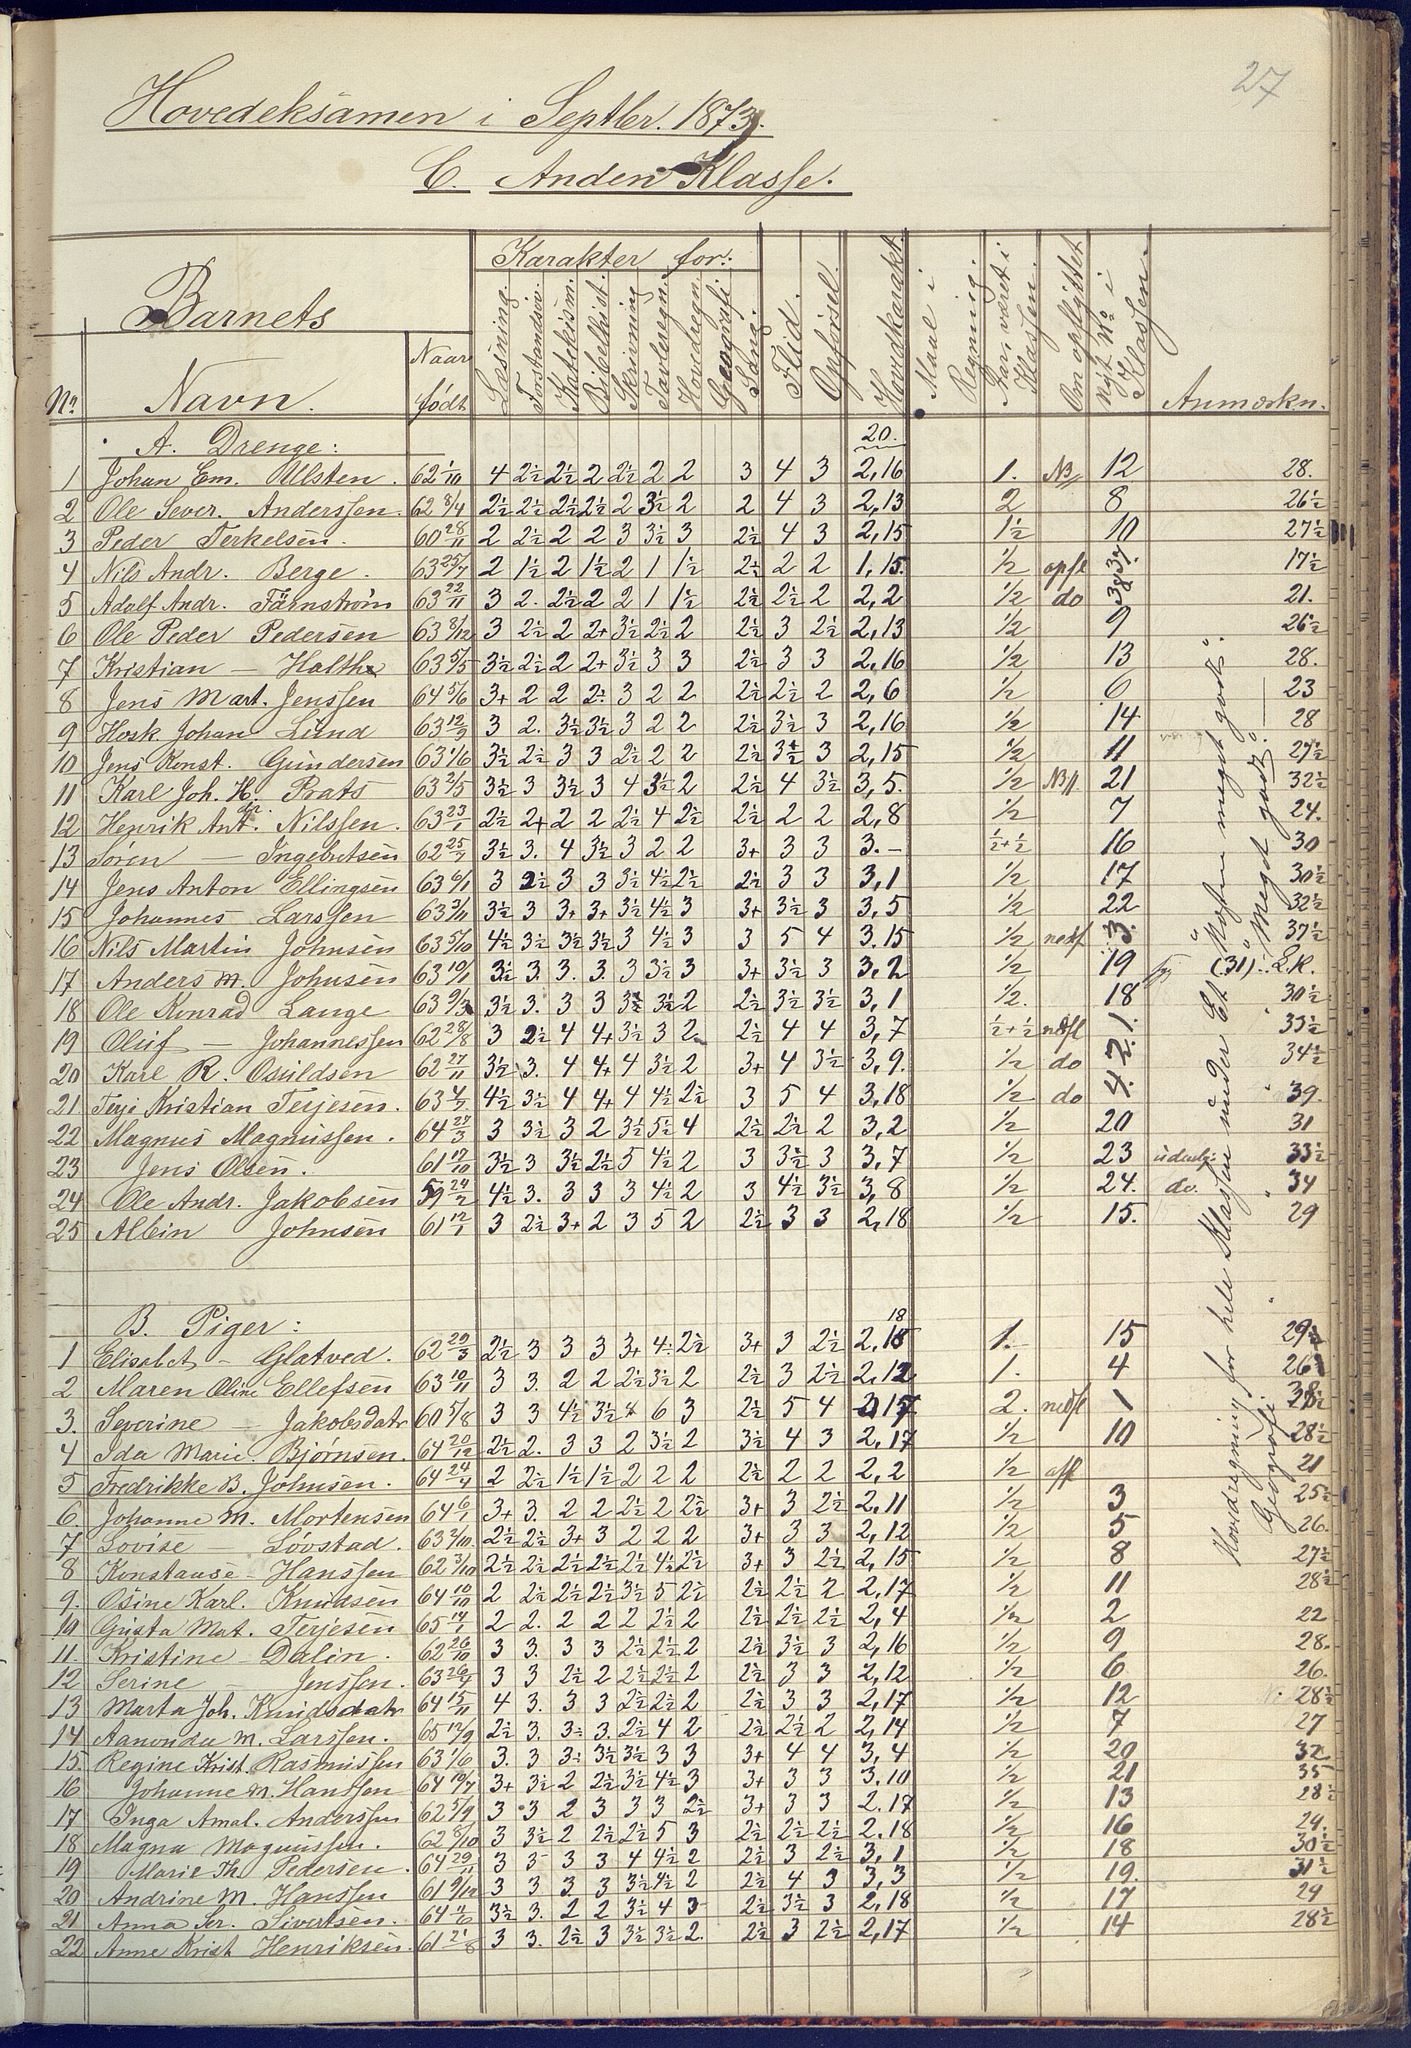 27
Hovedeksamen i Septbr. 1873.
C. Anden Klasse.
Barnets
Karakter for:
No. Navn. Naar født Læsning. Forstandsøv. Katekism. Bibelhist. Skrivning Tavleregn. Hovedregn. Geografi Sang. Flid. Opførsel. Hovedkarakt. Maal i Regning. Far, været i Klassen. Om opflyttet Nyt No i Klassen. Anmærkn.
A. Drenge: 20.
1 Johan Em. Ullsten. 62 1/10 4 2½ 2½ 2 2½ 2 2 3 4 3 2,16 1. NB 12 28.
2 Ole Sever. Anderssen. 62 8/4 2½ 2½ 2½ 2½ 2 3½ 2 2 4 3 2,13 2 8 26½
3 Peder Terkelsen. 60 28/11 2 2½ 2 2 3 3½ 3 2½ 4 3 2,15 1½ 10 27½
4 Nils Andr. Berge. 63 25/7 2 1½ 2 1½ 2 1 1½ 2½ 2 2 1,15. ½ opfl 37. 17½
5 Adolf Andr. Färnström 63 22/11 3 2. 2½ 2 2 1 1½ 2½ 2½ 2 2,2 ½ do 38 21.
6 Ole Peder Pedersen 63 8/12 3 2½ 2 2+ 3½ 2½ 2 2½ 3 2½ 2,13 ½ 9 26½
7 Kristian — Holthe 63 5/5 3½ 2½ 2 2+ 3½ 3 3 2½ 3 3 2,16 ½ 13 28.
8 Jens Mart. Jenssen 64 5/6 3+ 2 2 2. 3 2 2 2½ 2½ 2 2,6 ½ 6 23
9 Hosk Johan Lund 63 12/9 3 2. 3½ 3½ 3 2 2 2½ 3½ 3 2,16 ½ 14 28
10 Jens Konst. Gundersen 63 1/6 3½ 2½ 3 3 2½ 2 2 2½ 3½ 3 2,15 ½ 11 27½
11 Karl Joh. H. Prats 63 2/5 3½ 3 3½ 3 4 3½ 2 2½ 4 3½ 3,5. ½ NB 21 32½
12 Henrik Ant. Nilssen. 63 23/1 2½ 2+ 2 2 2½ 4 2½ 2½ 2 2 2,8 ½ 7 24.
13 Søren — Ingebretsen 62 25/7 3½ 3. 4 3½ 3 2 2 3+ 3 3 3.— ½+½ 16 30
14 Jens Anton Ellingsen 63 6/1 3 2½ 3 3 3½ 4½ 2½ 2½ 3 3 3,1 ½ 17 30½
15 Johannes Larssen 63 2/11 3½ 3 3+ 3+ 3½ 4½ 3 3+ 3½ 3 3,5 ½ 22 32½
16 Nils Martin Johnsen 63 5/10 4½ 3½ 3½ 3½ 3 4½ 3 3 5 4 3.15 ½ nedf 3. 37½
17 Anders M. Johnsen 63 19/1 3½ 3. 3. 3 3 3½ 3 3+ 3½ 3 3,2 ½ 19 (31)
18 Ole Konrad Lange 63 9/3 3½ 3. 3 3 3½ 3½ 2 2½ 3½ 3½ 3,1 ½. 18 30½
19 Oluf — Johannessen 62 28/8 3 2½ 4 4+ 3½ 3 2 2½ 4 4 3,7 ½+½ nedfl 1. 33½
20 Karl R. Osuldsen 62 27/11 3½ 3. 4 4+ 4 3½ 2 3+ 4 3½ 3,9. ½ do 2. 34½
21 Terje Kristian Terjesen. 63 4/7 4½ 3½ 4 4+ 4 4½ 2½ 3 5 4 3,18 ½ do 4. 39.
22 Magnus Magnussen. 64 27/3 3 3½ 3 2 3½ 5½ 4 2½ 2½ 2 3,2 ½ 20 31
23 Jens Olsen. 61 17/10 3½ 3 3½ 2½ 5 4½ 2 3 3½ 3 3,7 ½ 23 33½
24 Ole Andr. Jakobsen 59 24/2 4½ 3. 3 3 3 4½ 2 3 4½ 3½ 3,8 ½ 24. do. 34
25 Albin Johnsen 61 12/1 3 2½ 3+ 2 3 5 2 2½ 3 3 2,18 ½ 15. 29
Hovedregning for hele Klassen under Et "Næsten meget godt".
Geografi "Meget godt".
B. Piger:
1 Elisabet — Glatved. 62 29/3 2½ 3 3 3 3+ 4 2½ 3+ 3 2½ 2,18 1. 15 29½
2 Maren Oline Ellefsen 63 10/11 3 3. 2 2 2½ 3½ 2 2½ 3 2½ 2,12 1. 4 26
3. Severine — Jakobsdatr 60 5/8 3 3 4½ 3½ 6 3 2½ 5 4 15 2. nedfl 1
4 Ida Marie. Bjørnsen. 64 20/12 2½ 2. 3 3 2 3½ 2 3½ 4 3 2,17 ½ 10 28½
5 Fredrikke B. Johnsen. 64 24/4 2 2½ 1½ 1½ 2 2 2 2½ 2 2 2,2 ½ 21
6. Johanne M. Mortensen 64 6/1 3+ 3. 2 2 2½ 2 2½ 3+ 3 2½ 2,11 ½ 3 25½
7 Lovise — Løvstad. 63 2/10 2½ 2½ 3+ 3 2 2 2 3+ 3 3 2,12 ½ 5 26.
8 Konstanse — Hanssen 62 3/10 2½ 2½ 2½ 2½ 2½ 4½ 2½ 3+ 3 2½ 2,15 ½ 8 27½
9. Osine Karl. Knudsen 64 10/10 2 2½ 2½ 2½ 3½ 5 2½ 2½ 2½ 2 2,17 ½ 11 28½
10 Gusta Mat. Terjesen 65 14/1 2 2. 2 2 2 2½ 2 2½ 2½ 2½ 2,4 ½ 2 22
11. Kristine — Dalin. 62 26/10 3 3. 3 3 2½ 2½ 2 2½ 3½ 3 2,16 ½ 9 28.
12 Serine — Jenssen. 63 26/4 3 3 2½ 2 2½ 2½ 2 2½ 3 3 2,12 ½ 6 26.
13 Marta Joh. Knudsdatr 64 15/11 4 3. 3 3 2½ 2½ 2 2½ 3 3 2,17 ½ 12 28½
14 Aanonda M. Larssen. 65 12/9 2½ 3. 3. 3. 2½ 4 2 2½ 2½ 2 2,14 ½ 7 27
15. Regine Krist. Rasmussen 63 1/6 3. 3 3. 3½ 3½ 3 3 3+ 4 4 3,4 ½ 20 32
16 Johanne M. Hanssen 64 19/7 3+ 3½ 2 2½ 3½ 4½ 3 3+ 3 3 3.10 ½ 21 35
17 Inga Amal. Anderssen 62 5/9 3 3 2 3 3 3 2½ 3+ 3 3 2.17 ½ 13 28½
18 Magna Magnussen. 62 8/10 3 3½ 2 2½ 2½ 5 3 2½ 2½ 2½ 2.18 ½ 16 29.
19 Marie Th. Pedersen. 64 29/11 3 3 3 3 4 4½ 2 2½ 3 2½ 3,1 ½ 18 30½
20 Andrine M. Hanssen 61 9/12 3 3 3 3 3½ 4½ 2 2½ 4 3 3,3 ½ 19. 31½
21 Anna Ser. Sivertsen. 64 11/6 3½ 3. 2 2 3½ 4 3 2½ 3½ 3 2,18 ½ 17 29
22 Anne Krist Henriksen. 61 21/8 3 3. 2½ 3 3½ 3½ 2. 2½ 3 2½ 2,17 ½ 14 28½